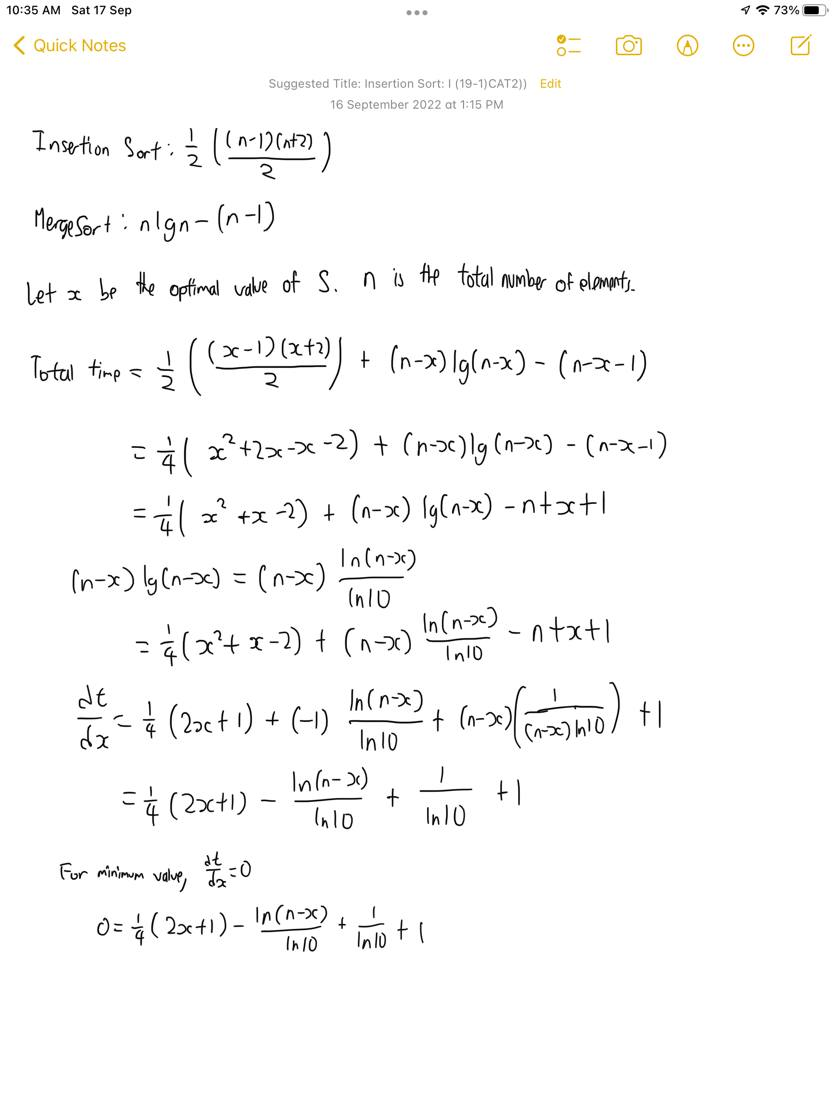 10:35 AM Sat 17 Sep
73%
Quick Notes
Suggested Title: Insertion Sort: I (19-1)CAT2)) Edit
16 September 2022 at 1:15 PM
Insertion Sort: 1/2 ((n-1)(n+2)/2)
MergeSort: nlgn - (n-1)
Let x be the optimal value of S. n is the total number of elements.
Total time = 1/2 ((x-1)(x+2)/2) + (n-x) lg(n-x) - (n-x-1)
= 1/4 (x²+2x-x-2) + (n-x)lg(n-x) - (n-x-1)
= 1/4 (x²+x-2) + (n-x) lg(n-x) - n+x+1
(n-x) lg(n-x) = (n-x) ln(n-x)/ln10
= 1/4 (x²+x-2) + (n-x) ln(n-x)/ln10 - n+x+1
dt/dx = 1/4 (2x+1) + (-1) ln(n-x)/ln10 + (n-x)(1/(n-x)ln10) + 1
= 1/4 (2x+1) - ln(n-x)/ln10 + 1/ln10 + 1
For minimum value, dt/dx = 0
0 = 1/4 (2x+1) - ln(n-x)/ln10 + 1/ln10 + 1